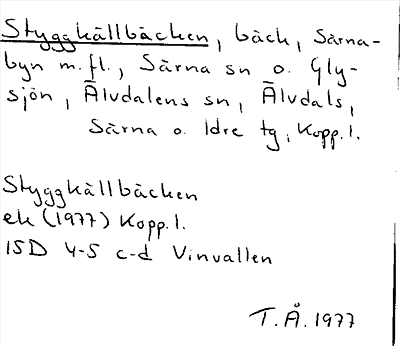 Styggkällbäcken, bäck, Särna-
byn m.fl., Särna sn o. Gly-
sjön, Älvdalens sn, Älvdals,
Särna o. Idre tg, Kopp.l.
Styggkällbäcken
ek (1977) Kopp.l.
15D 4-5 c-d Vinvallen
T.Å. 1977